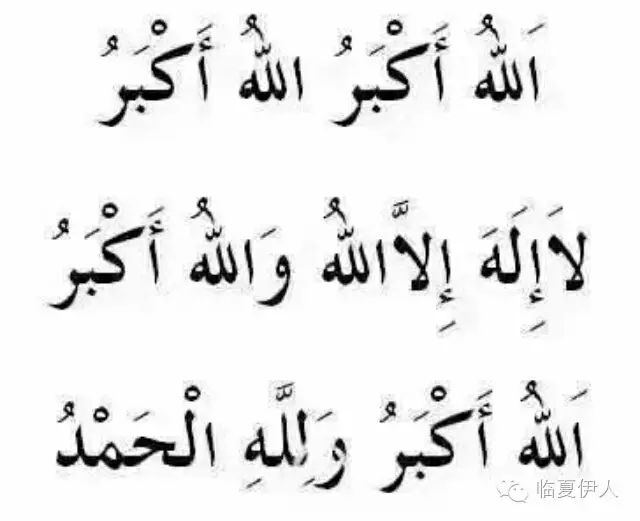 اَللهُ أَكْبَرُ اللهُ أَكْبَرُ
لاَإِلَهَ إِلاَّاللهُ وَاللهُ أَكْبَرُ
اَللهُ أَكْبَرُ وَلِلَّهِ الْحَمْدُ
临夏伊人